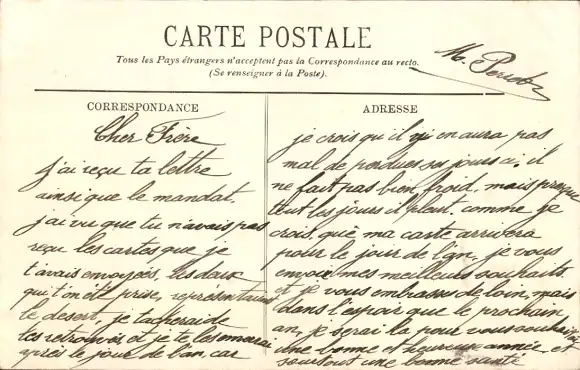 CARTE POSTALE
Tous les Pays étrangers n'acceptent pas la Correspondance au recto.
(Se renseigner à la Poste).
CORRESPONDANCE
Cher Frère
j'ai reçu ta lettre
ainsi que le mandat.
j'ai vu que tu n'avais pas
reçu les cartes que je
t'avais envoyées, les deux
qui t'on été prise, représentaient
le desert, je tacherai de
les retrouver et je te les enverrai
après le jour de l'an, car
M.
ADRESSE
je crois qu'il y en aura pas
mal de perdues ses jours ci. il
ne fait pas bien froid, mais presque
tout les jours il pleut. comme je
crois, que ma carte arrivera
pour le jour de l'an, je vous
envoie mes meilleurs souhaits
et je vous embrasse de loin, mais
dans l'espoir que le prochain
an, je serai la pour vous souhaiter
une bonne et heureuse année, et
surtout une bonne santé